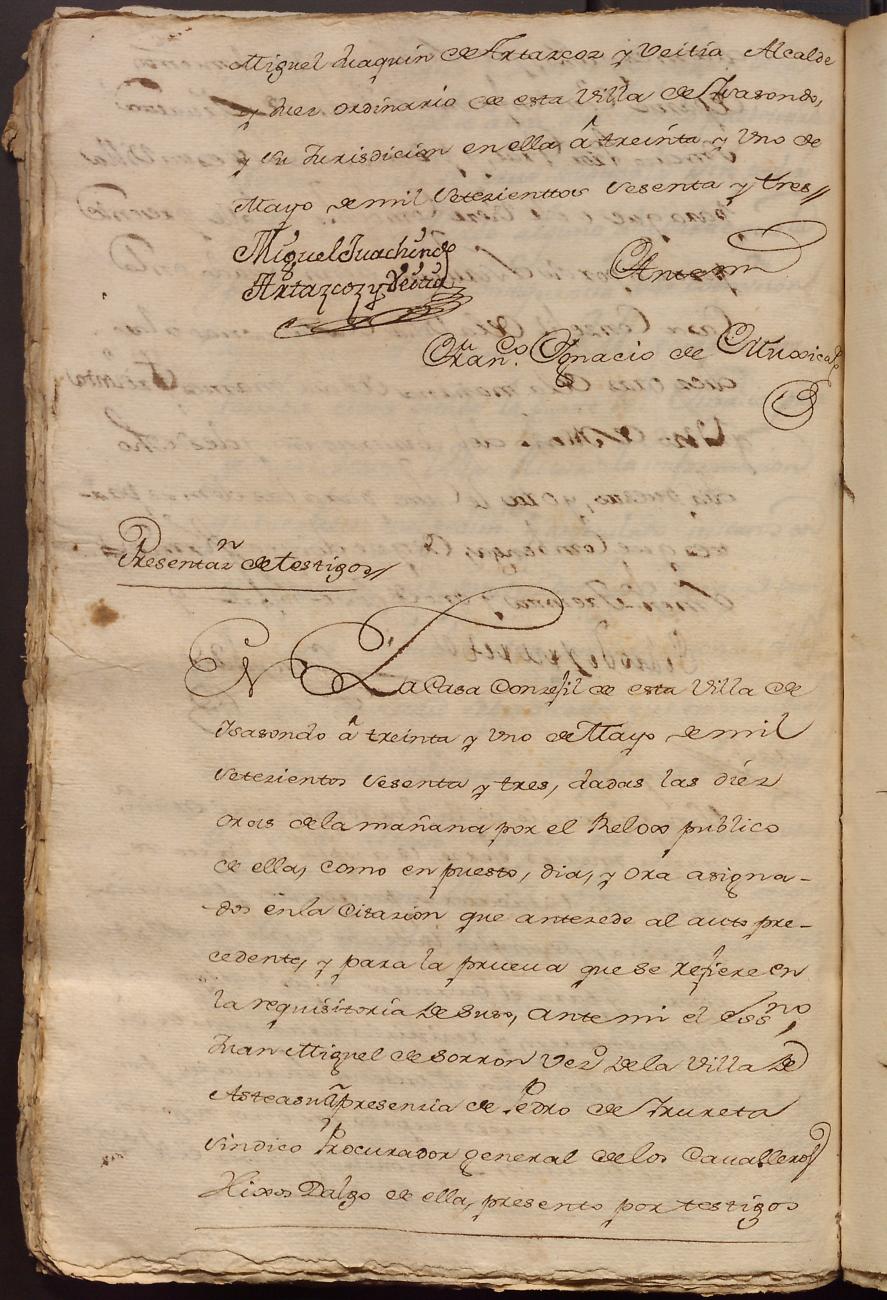 Miguel Juaquin de Artazcoz y Veitia Alcalde
y Juez ordinario de esta Villa de Ysasondo,
y su Jurisdicion en ella â treinta y Uno de
Mayo de mil Setezienttos Sesenta y tres//
Miguel Juachin de
Artazcoz y Veitia
Antemi
Fran.co Ygnacio de
Presentaz.n de testigos//
EN La Casa Conzejil de esta Villa de
Isasondo â treinta y Uno de Mayo de mil
Setezientos Sesenta y tres, dadas las diez
oras de la mañana por el Relox publico
de ella, como en puesto, dia, y ora asigna-
dos en la Citazion que antezede al auto pre-
cedente, y para la prueva que se refiere en
la requisitoria de Suso, ante mi el Ess.no
Juan Miguel de Sorron Vez.o de la Villa de
Asteasu â presenzia de Pedro de Irureta
Sindico Procurador general de los Cavalleros
Hixos Dalgo de ella, presento por testigos